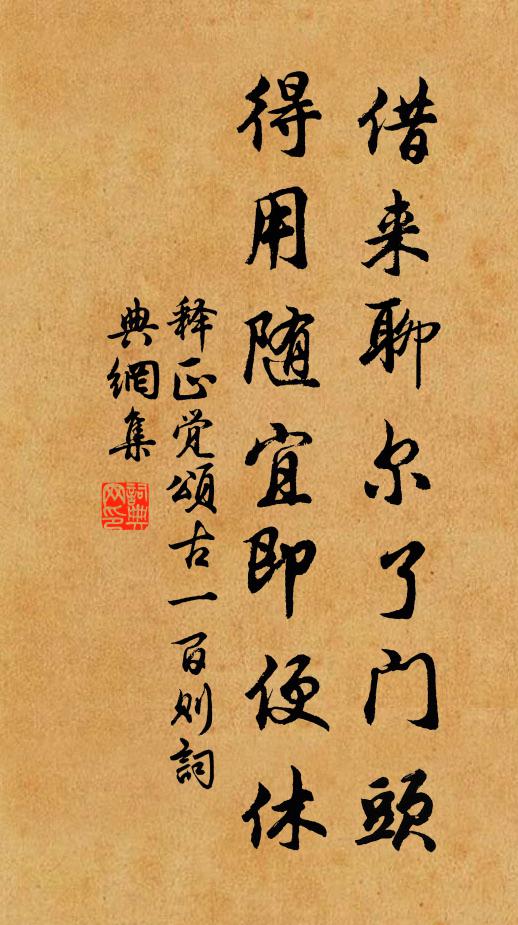 借来聊尔了门頭
得用随宜即便休
释正觉頌古一百则詞
典網集
詞典
网印